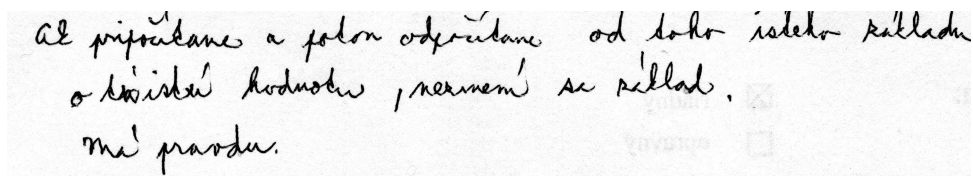 ak pripočítame a potom odpočítame od toho istého základu
o tú istú hodnotu, nezmení sa základ.
Má pravdu.